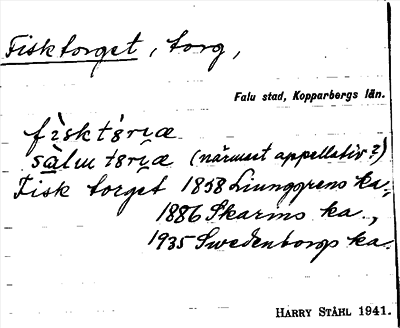 Fisktorget, torg,
Falu stad, Kopparbergs län.
fìsktɜrıæ
sàlutɜrıæ (närmast appellativ?)
Fisk torget 1858 Ljunggrens ka,
1886 Skarms ka,
1935 Swedenborgs ka.
HARRY STÅHL 1941.